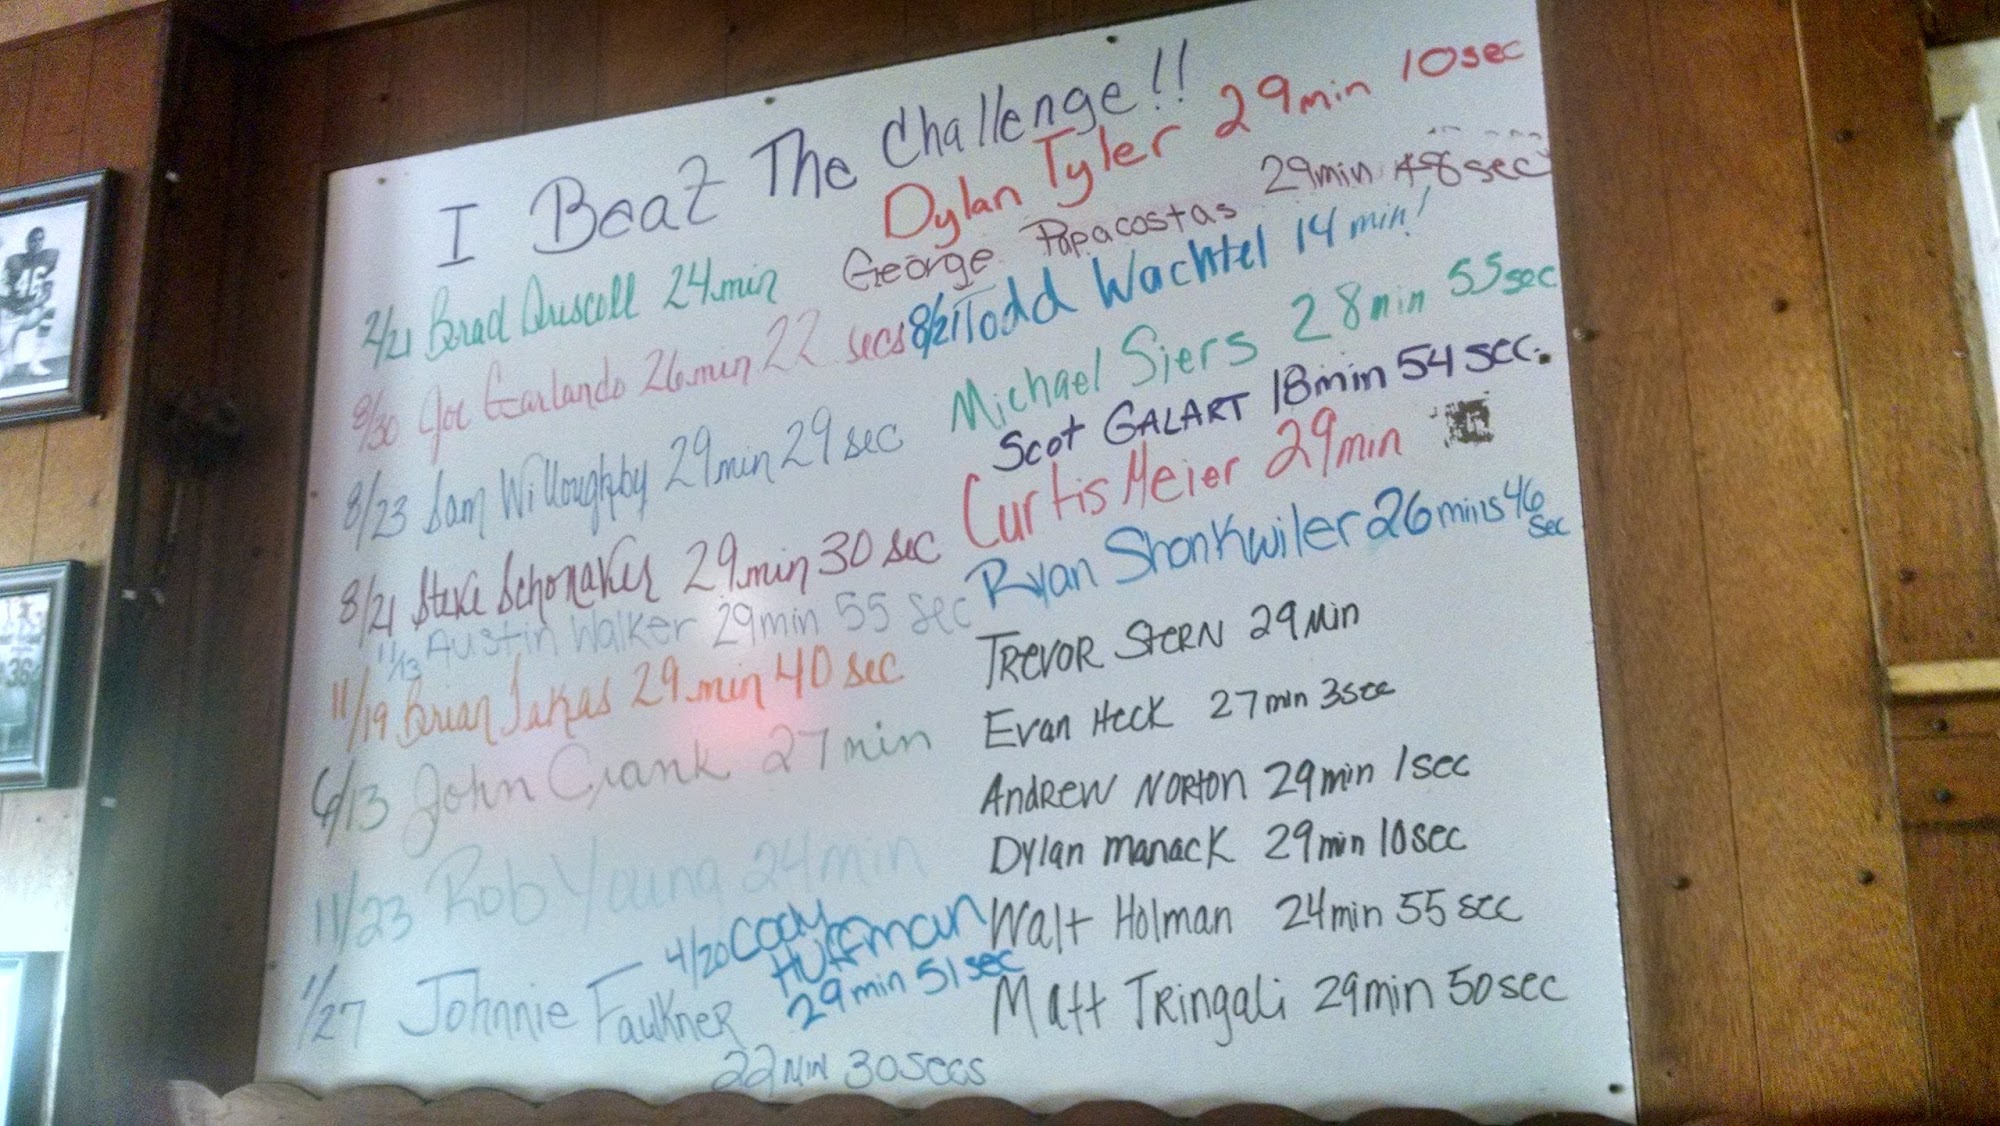 I Beat The Challenge!!
2/21 Brad Driscoll 24min
8/30 Joe Garlando 26min 22 secs
8/23 Sam Willoughby 29min 29 sec
8/21 Steve Schonaker 29min 30 sec
11/13 Austin Walker 29min 55 sec
11/19 Brian Takas 29 min 40 sec
6/13 John Crank 27min
11/23 Rob Young 24min
1/27 Johnnie Faulkner
22 min 30secs
4/20 Cody
Huffman
29min 51 sec
Dylan Tyler 29min 10sec
George Papacostas 29min 48sec
8/21 Todd Wachtel 14 min!
Michael Siers 28min 55sec
Scot GALART 18min 54 sec.
Curtis Meier 29min
Ryan Shonkwiler 26 mins 46
sec
TREVOR STERN 29 Min
Evan Heck 27min 3sec
ANDREW NORTON 29min 1sec
Dylan manack 29min 10sec
Walt Holman 24min 55 sec
Matt TRingali 29min 50sec
46
36